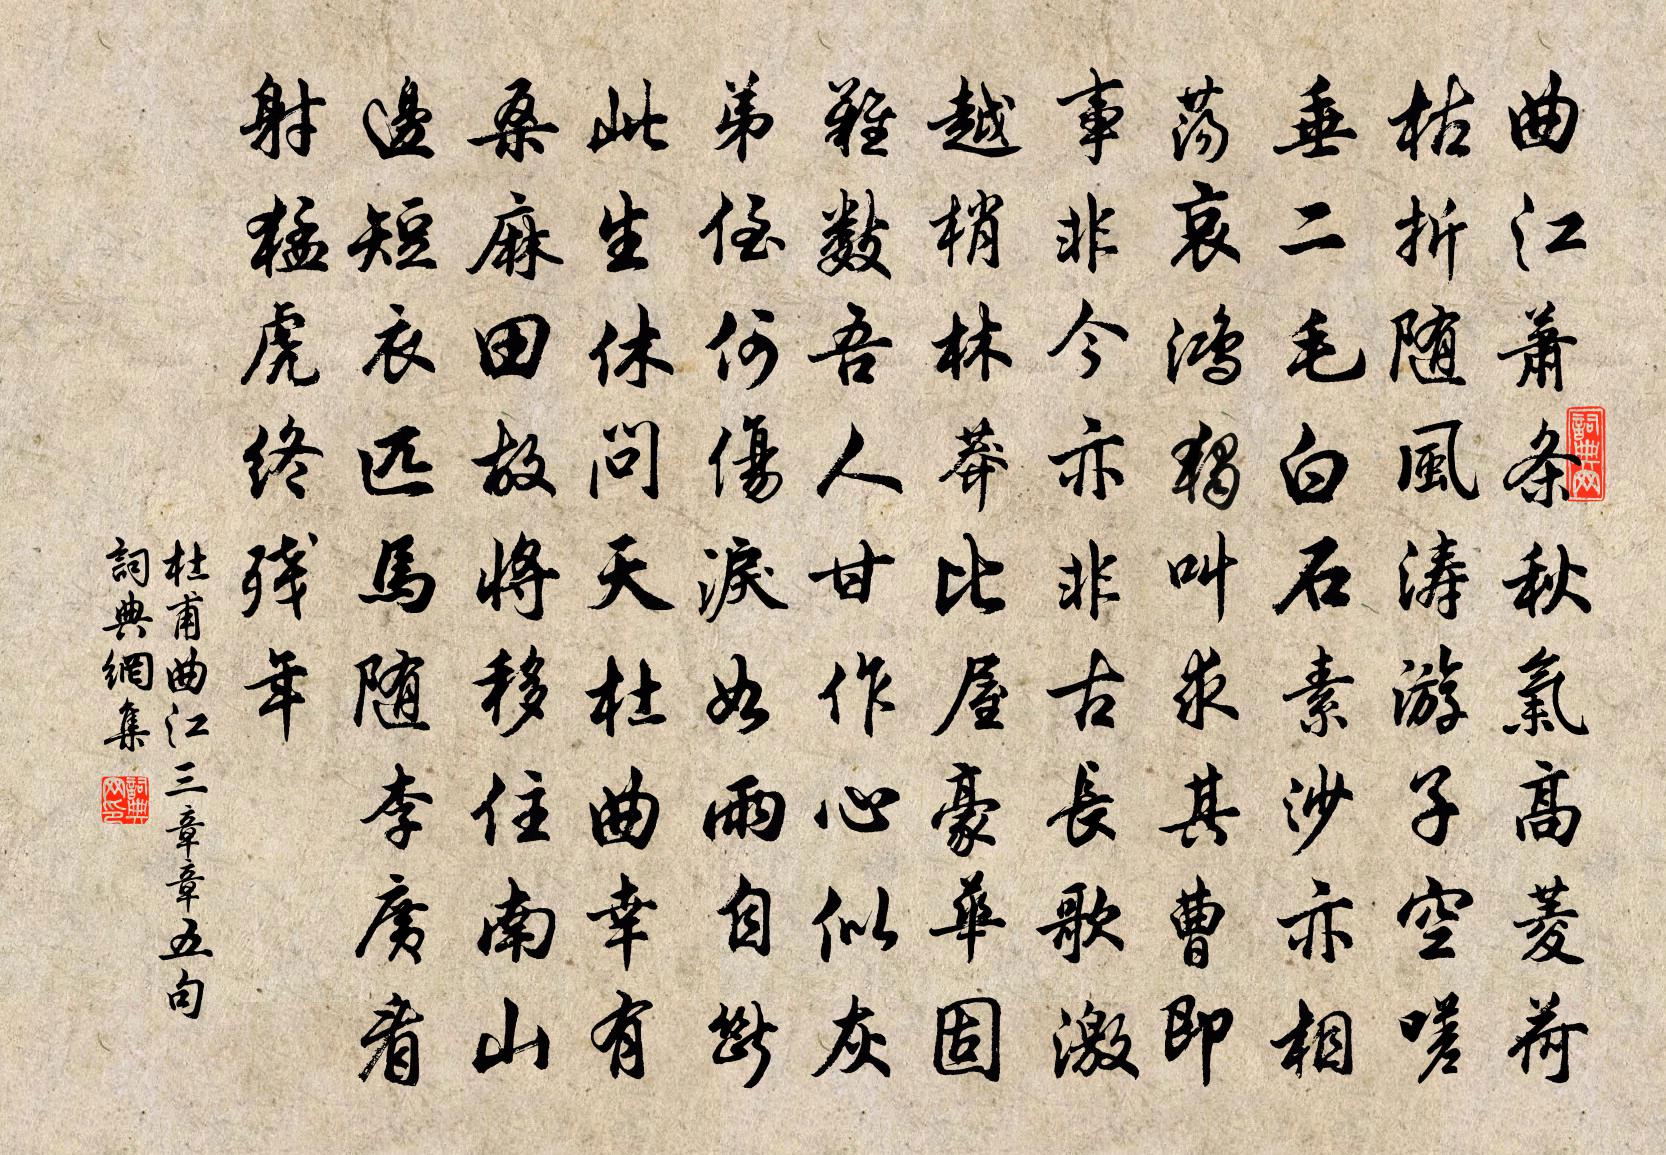 曲江萧条秋氣高菱荷
枯折随風濤游子空嗟
垂二毛白石素沙亦相
荡哀鸿独叫求其曹即
事非今亦非古長歌激
越梢林莽比屋豪華固
難數吾人甘作心似灰
弟侄何傷淚如雨自斷
此生休問天杜曲幸有
桑麻田故將移住南山
邊短衣匹馬随李廣看
射猛虎终残年
杜甫曲江三章章五句
詞典網集
詞典网
詞典网印